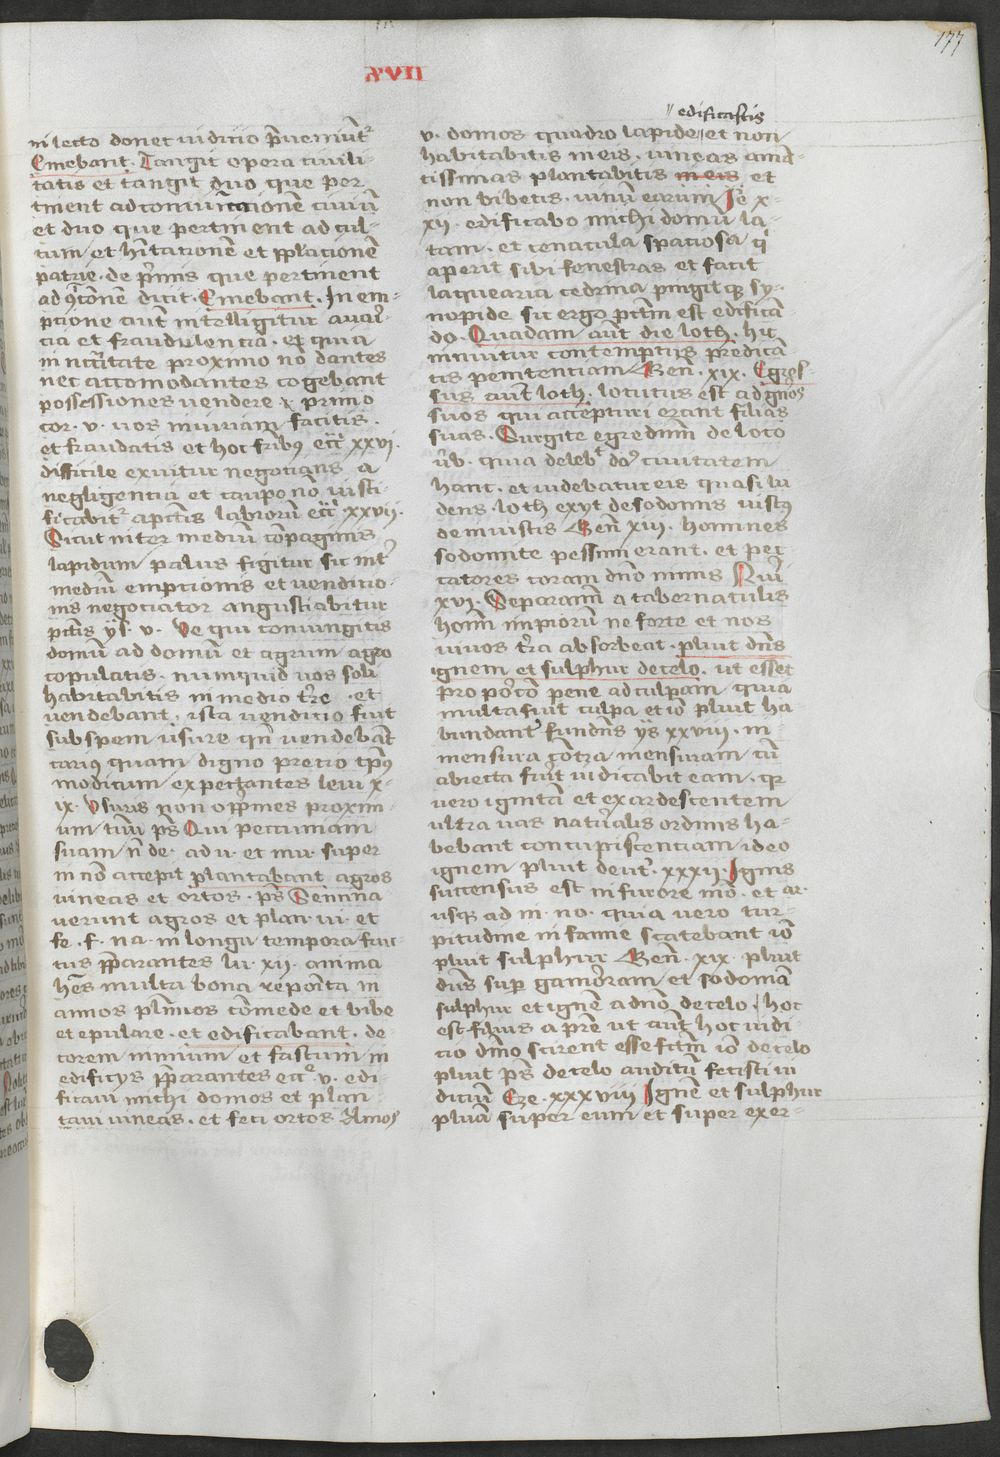 177
XVII
in lecto donec iudicio p̄ueniūt᷑
Emebant. Tangit opera ciuili-
tatis et tangit duo que per
tinent ad coniūcccionē ciuiū
et duo que pertinent ad cul-
tum et hītationē et ꝓlacionē
patrie. de p̄mis que pertinent
ad dicit. Emebant. In em-
ptione aūt intelligitur auari
cia et fraudulencia. et quia
in nc̄citate proximo nō dantes
nec accomodantes cogebant
possessiones vendere p̄ primo
cor. v. vos iniuriam facitis.
et fraudatis et hoc fribꝰ ecc̄i xxvi.
difficile exuitur negocians a
negligencia et caupo nō iusti-
ficabit᷑ a pctīs labiorū ecc̄i xxvii.
Sicut in ter mediū cōpaginis
lapidum palus figitur sic int̄
mediū empcionis et vendicio-
nis negociator angustiabitur
pctīs ys. v. Ve qui coniungitis
domū ad domū et agrum agro
copulatis. numquid vos soli
habitabitis in medio tr̄e. et
vendebant. ista vendicio fuit
sub spem vsure qn̄ vendebāt
carius quam digno precio tp̄us
modicum expectantes leui x-
ix. Vsuris non opp̄mes proxim
um tuū ps̄ Qui pecuniam
suam n̄ de. ad v. et mu. super
in nō accepit plantabant agros
vineas et ortos. ps̄ Semina
uerunt agros et plan. vi. et
fe. f. na. in longa tempora fruc-
tus p̄parantes lu. xii. anima
hēs multa bona reposita in
annos pl̄imos cōmede et bibe
et epulare. et edificabant. de-
corem nimium et fastum in
edificijs p̄parantes ecc̄e v. edi-
ficaui michi domos et plan-
taui vineas. et feci ortos Amos
// edificastis
v. domos quadro lapide // et non
habitabitis in eis. vineas amā-
tissimas plantabitis in eis et
non bibetis. vinū earum Je x-
xij. edificabo michi domū la-
tam. et cenacula spaciosa q
aperit sibi fenestras et facit
laquearia cedrina pingitqꝫ sy-
nopide sic ergo pctm̄ est edificā-
do. Quadam aūt die loth. hic
innuitur contemptus predicā-
tis penitenciam Gen̄. xix. Egres-
sus aūt loth. locutus est ad gn̄os
suos qui accepturi erant filias
suas. Surgite egredimī de loco
isto. quia deleb᷑ dn̄s ciuitatem
hanc. et videbatur eis quasi lu
dens. loth exyt de sodomis iustus
de iniustis Gen̄ xiij. homines
sodomite pessimi erant. et pec-
catores coram dn̄o nimis Nuī
xvi. Separamī a tabernaculis
homī impiorū ne forte et nos
viuos tr̄a absorbeat. pluit dn̄s
ignem et sulphur de celo. vt esset
proporcō pene ad culpam quia
multa fuit culpa et iō pluit ha-
bundant᷑ fundens ys xxviii. in
mensura cōtra mensuram cū
abiecta fuit iudicabit eam. qꝫ
vero ignitā et exardescentem
vltra vas naturalis ordinis ha-
bebant concupiscenciam ideo
ignem pluit deut̄. xxxij. Ignis
succensus est in furore mō. et ar.
usqꝫ ad in. no. quia vero tur-
pitudine infamie scatebant iō
pluit sulphur Gen̄. xix. pluit
dn̄s sup gamorram et sodomā
sulphur et ignē a dn̄o de celo. hoc
est filius a pr̄e vt aūt hoc iudi
cio dīno scirent esse fctm̄ iō de celo
pluit ps̄ de celo auditū fecisti iu
diciū Eze. xxxviii Ignē et sulphur
pluā super eum et super exer-